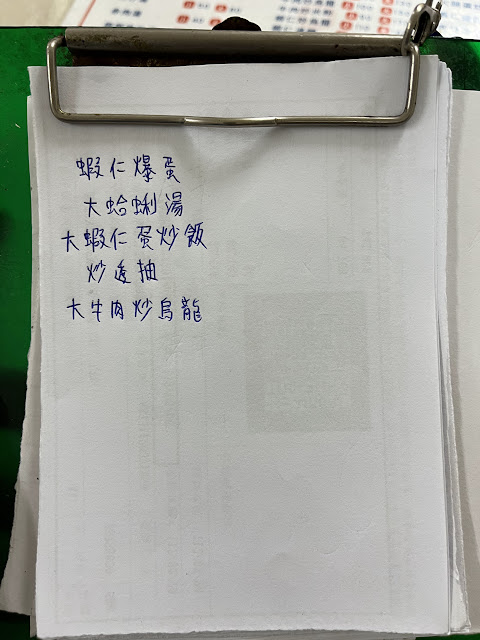 蝦仁爆蛋
大蛤蜊湯
大蝦仁蛋炒飯
炒透抽
大牛肉炒烏龍